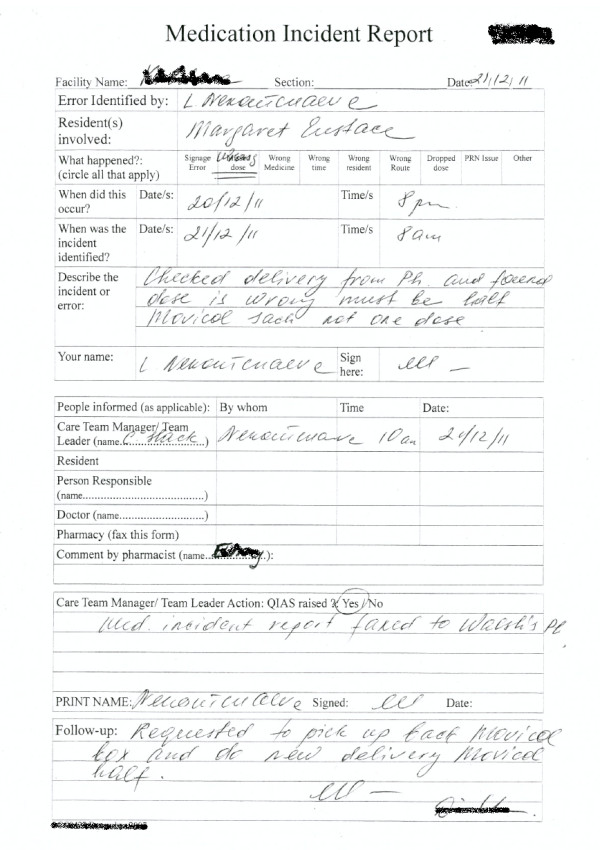 Medication Incident Report
Facility Name: Section: Date: 21/12/11
Error Identified by: L
Resident(s) involved: Margaret Eustace
What happened?: (circle all that apply) Signage Error Wrong dose Wrong Medicine Wrong time Wrong resident Wrong Route Dropped dose PRN Issue Other
When did this occur? Date/s: 20/12/11 Time/s 8pm.
When was the incident identified? Date/s: 21/12/11 Time/s 8am
Describe the incident or error:
Checked delivery from Ph and found
dose is wrong must be half
Movicol sach not one dose
Your name: L Sign here:
People informed (as applicable): By whom Time Date:
Care Team Manager/ Team Leader (name.C. Stack.) 10am 21/12/11
Resident
Person Responsible (name........................................)
Doctor (name....................................)
Pharmacy (fax this form)
Comment by pharmacist (name..............):
Care Team Manager/ Team Leader Action: QIAS raised ? Yes / No
Med. incident report faxed to Walsh's Ph.
PRINT NAME: Signed: Date:
Follow-up: Requested to pick up back Movicol
box and do new delivery Movicol
half.